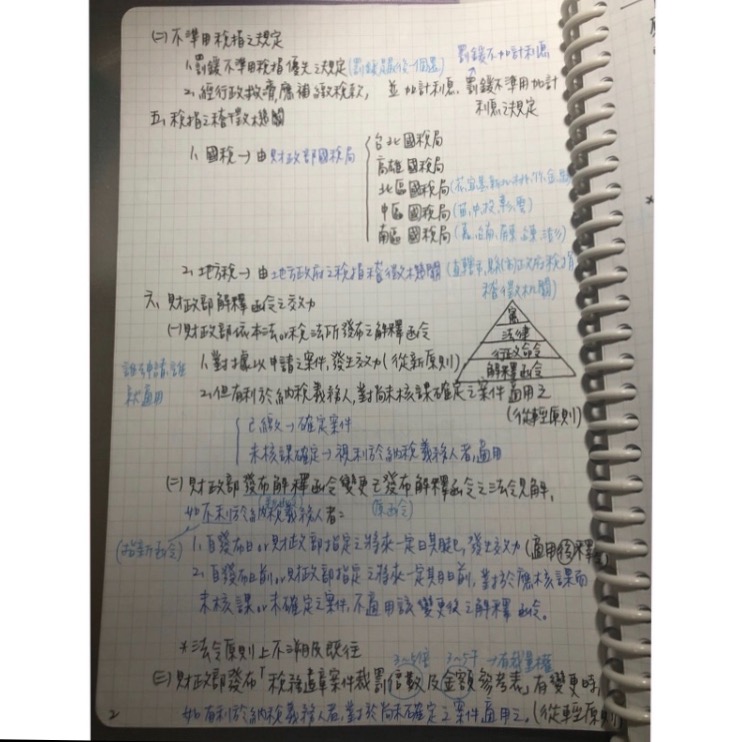 (二)不準用稅捐之規定
1. 罰鍰不準用稅捐優先之規定
罰鍰不加計利息
2. 經行政救濟,應補繳稅款,並加計利息.罰鍰不準用加計利息之規定
五、稅捐之稽徵機關
1. 國稅→由財政部國稅局
台北國稅局
高雄國稅局
北區國稅局
中區國稅局(苗.中.投.彰.雲)
南區國稅局
2. 地方稅→由地方政府之稅捐稽徵機關(直轄市.縣(市)政府稅捐稽徵機關)
六、財政部解釋函令之效力
(一)財政部依本法or稅法所發布之解釋函令
憲
法律
行政命令
解釋函令
1. 對據以申請之案件,發生效力(從新原則)
誰申請,誰
適用
2. 但有利於納稅義務人,對尚未核課確定之案件適用之
(從輕原則)
已繳→確定案件
未核課確定→視利於納稅義務人者,適用
(二)財政部發布解釋函令變更已發布解釋函令之法令見解,
如不利於納稅義務人者:
(原函令)
(指新函令)
1. 自發布日or財政部指定之將來一定日期起,發生效力
2. 自發布日前.or財政部指定之將來一定期日前,對於應核課而
未核課.or未確定之案件,不適用該變更後之解釋函令。
*法令原則上不溯及既往
3~5倍 3~5千→有裁量權
(三)財政部發布「稅務違章案件裁罰倍數及金額參考表」有變更時,
如有利於納稅義務人者,對於尚未確定之案件適用之.(從輕原則)
2